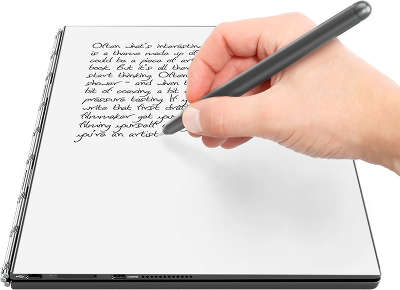 Often what's interesting
is a theme made up of
could be a piece of art
book. But it's all there
start thinking. Often
shower - and when t
bit of craving, a bit
pressure tasting. If y
write that first dra
filmmaker got you
filming yourself
you're an artist